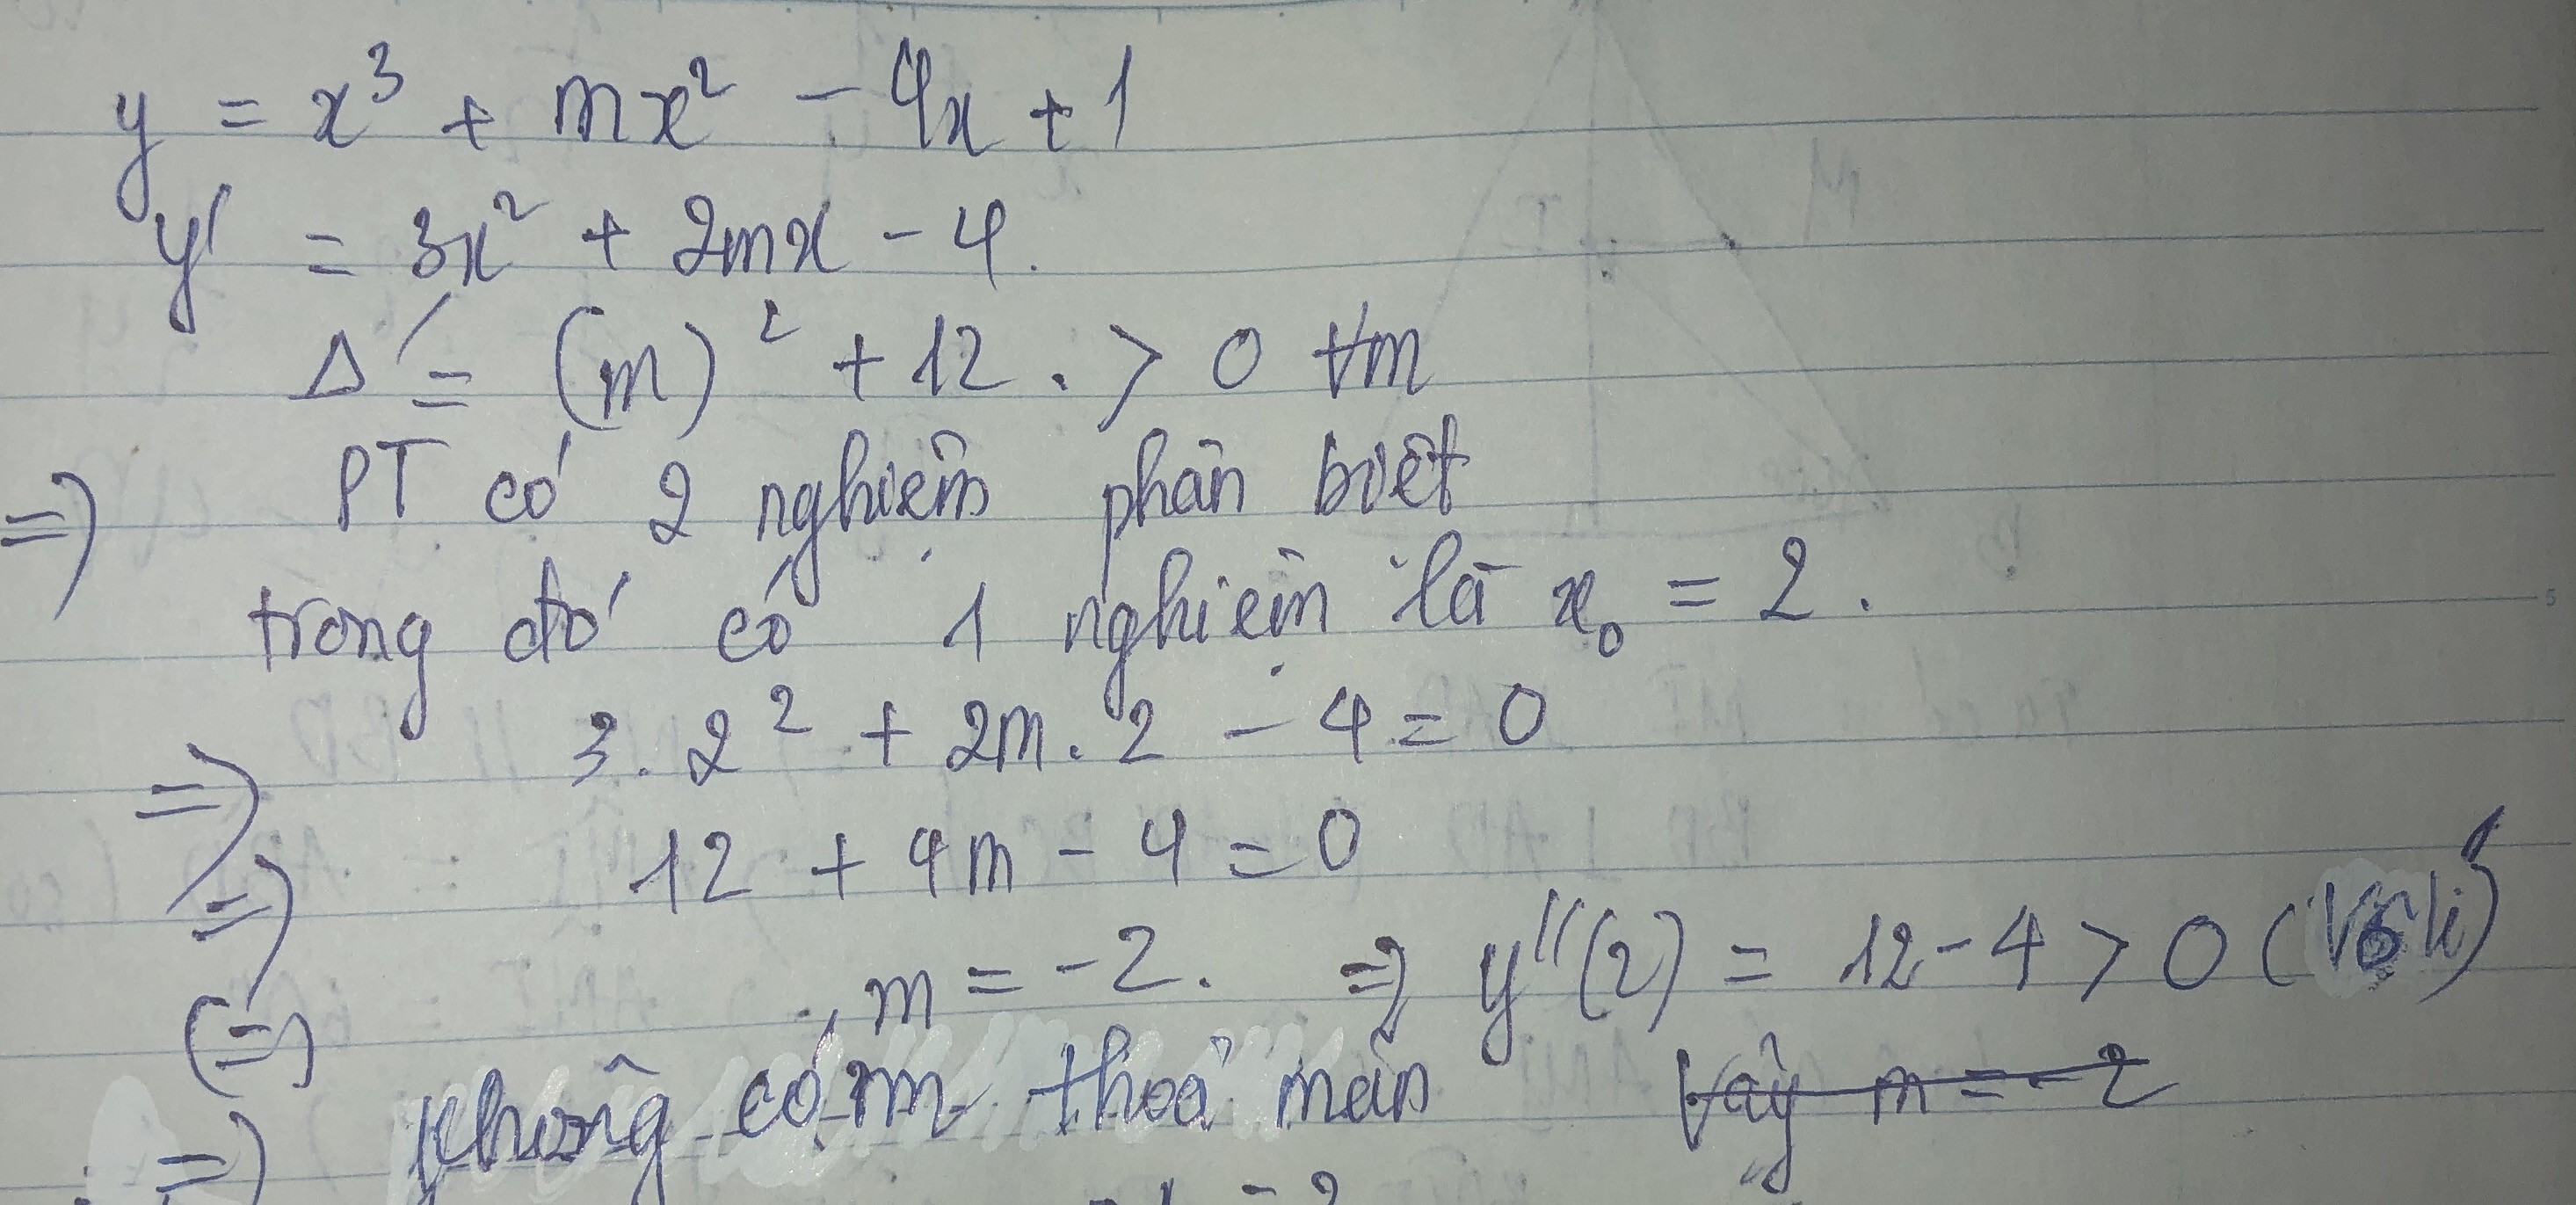 y = x³ + mx² - 4x + 1
y' = 3x² + 2mx - 4.
Δ' = (m)² + 12 . > 0 ∀m
=> PT có 2 nghiệm phân biệt
trong đó có 1 nghiệm là x₀ = 2.
=> 3.2² + 2m.2 - 4 = 0
=> 12 + 4m - 4 = 0
<=> m = -2. => y''(2) = 12 - 4 > 0 (Vô lí)
=> không có m thoả mãn Vậy m = -2